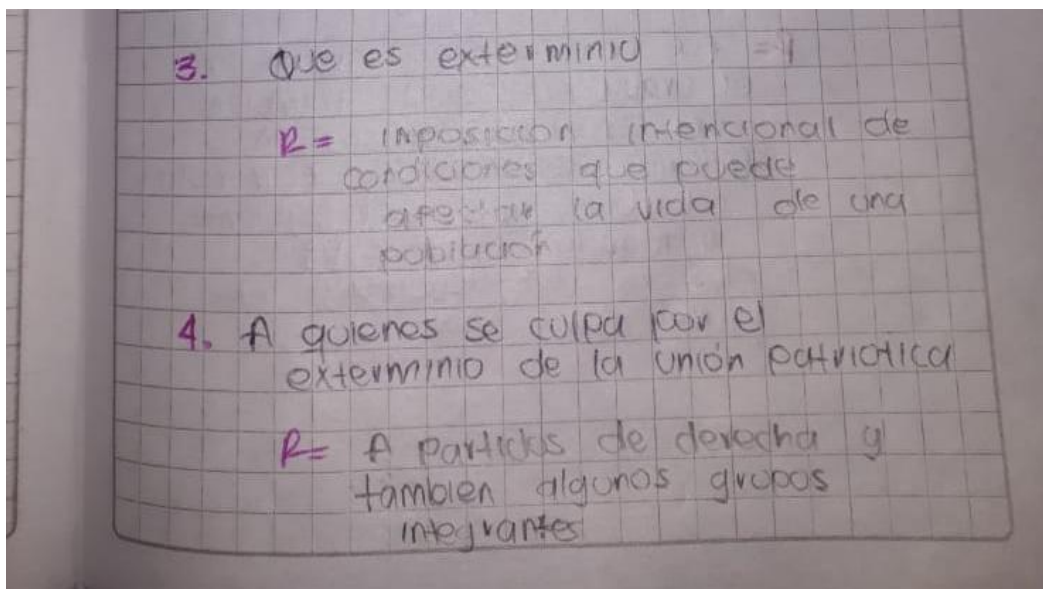 3. Que es exterminio
R= imposicion intencional de
condiciones que puede
afectar la vida de una
poblacion
4. A quienes se culpa por el
exterminio de la unión patriotica
R= A partidos de derecha y
tambien algunos grupos
integrantes